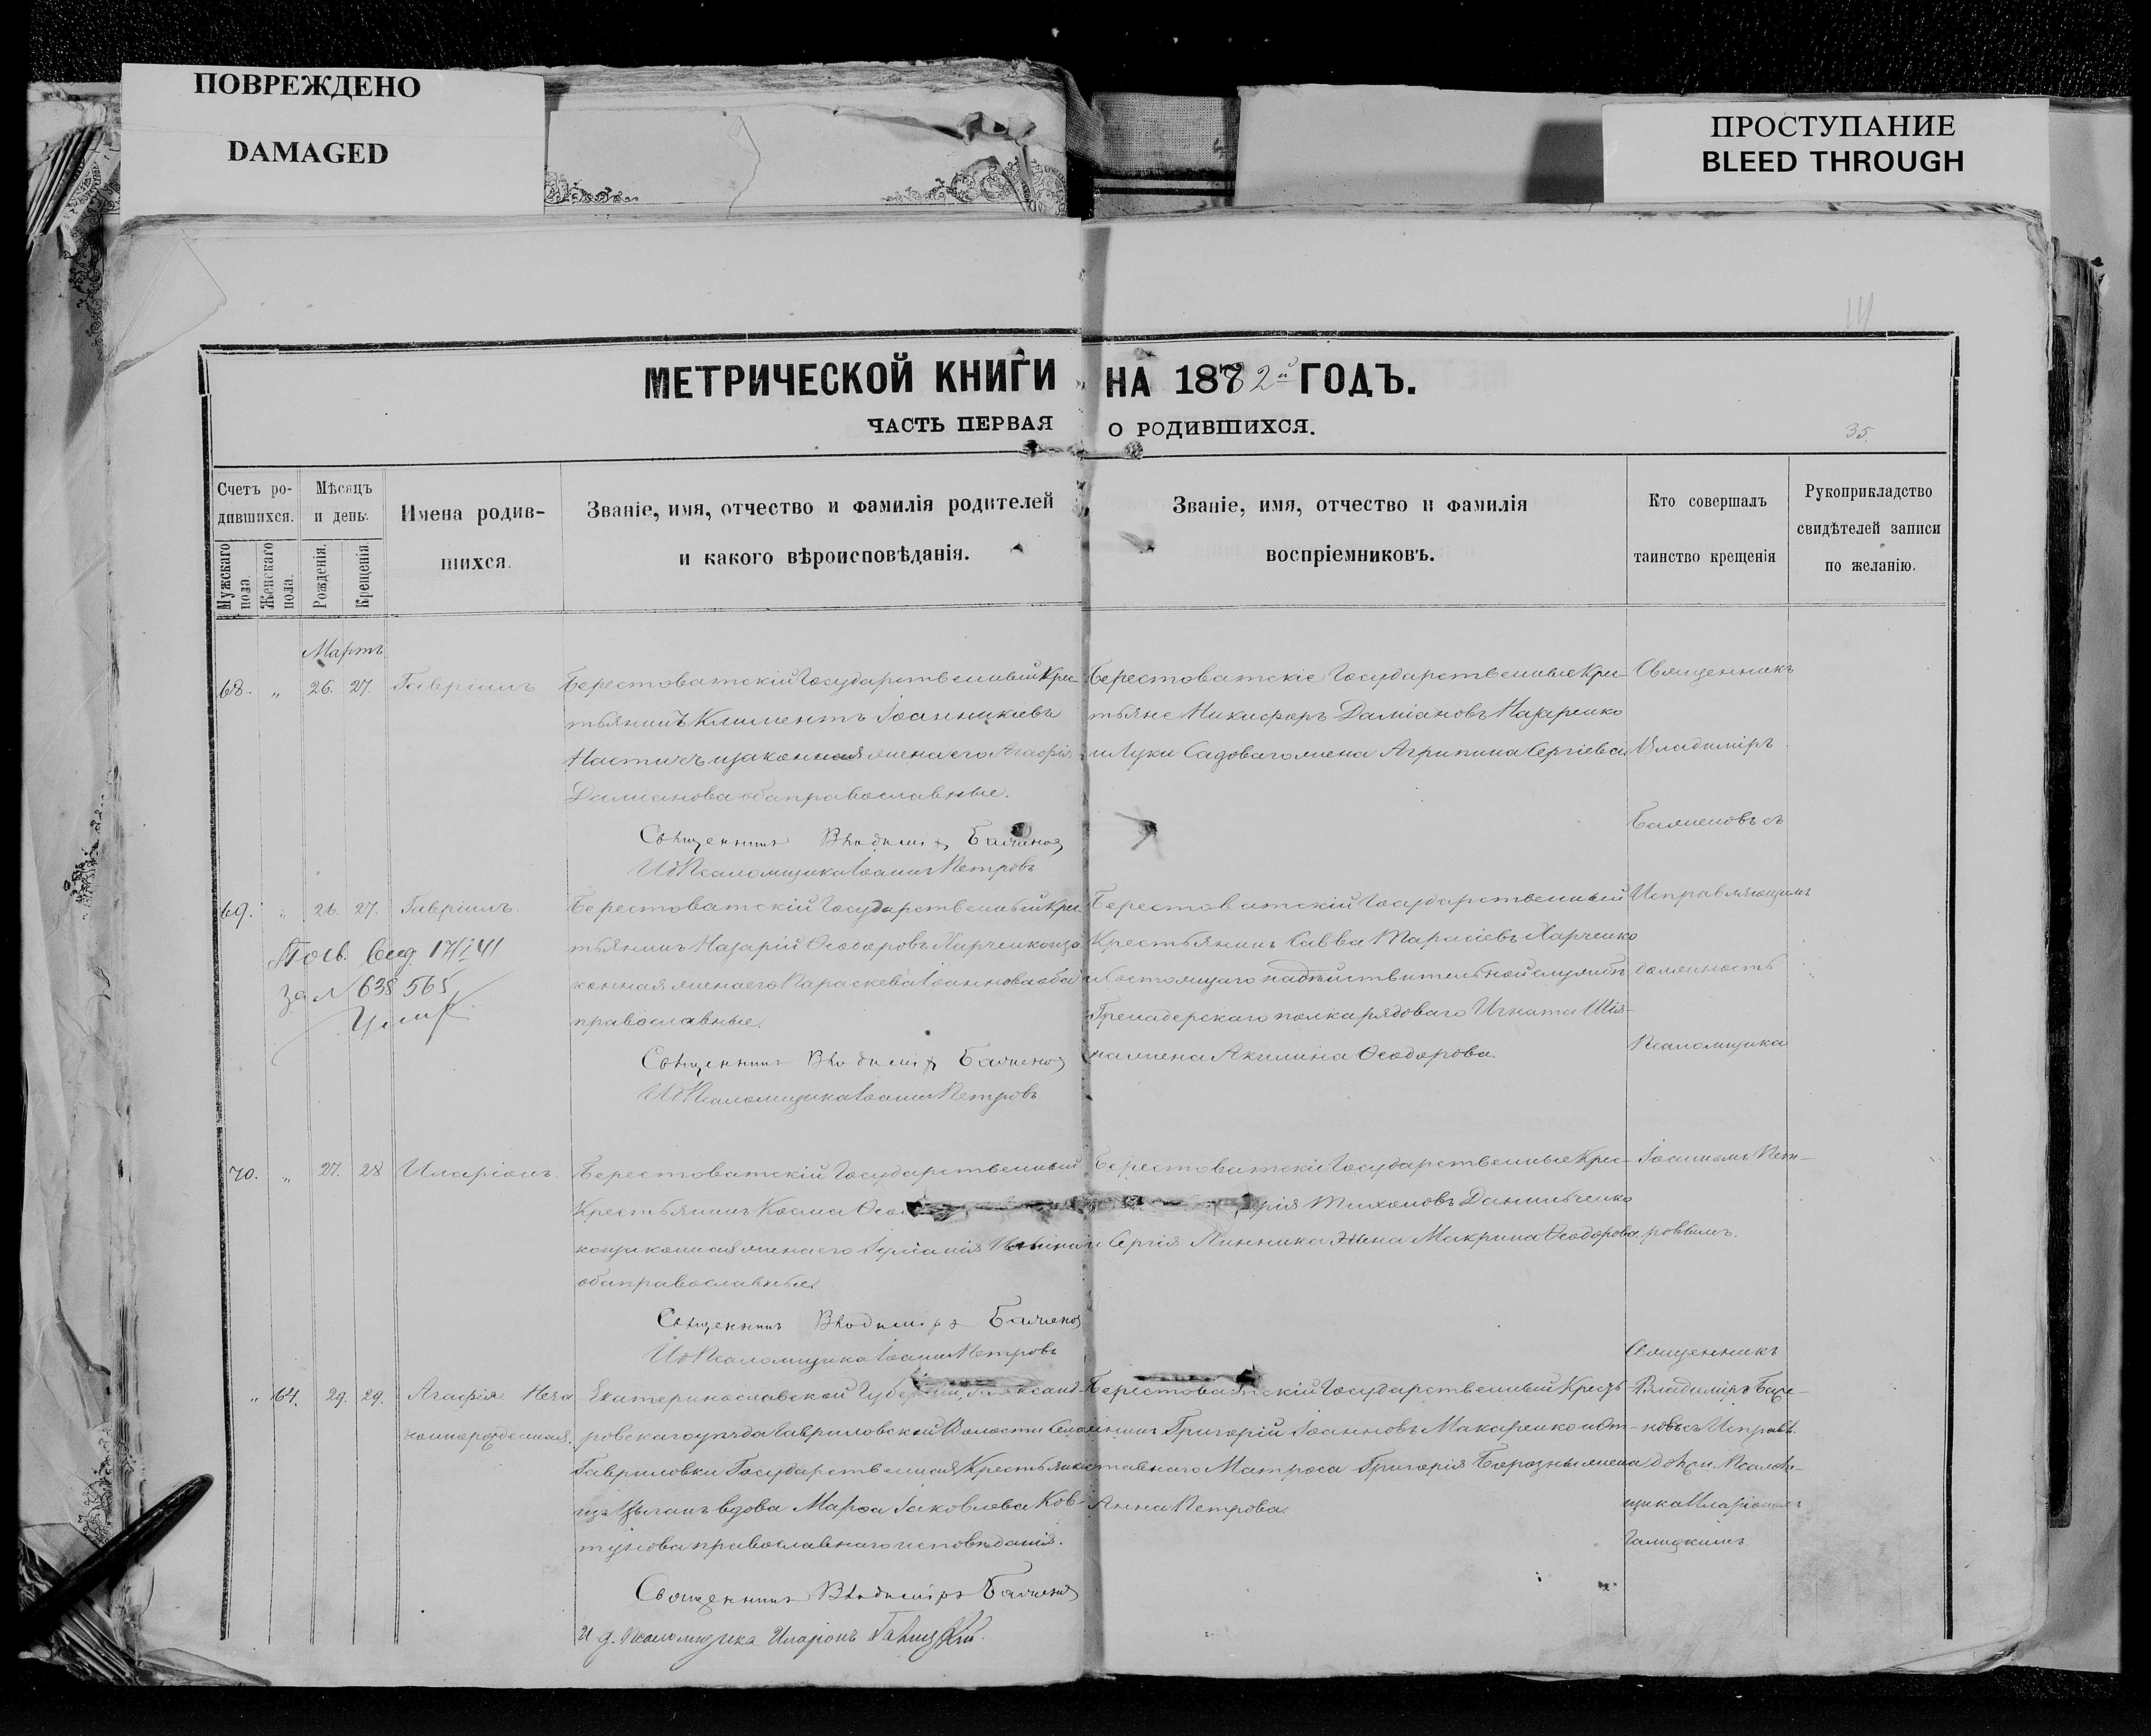 ПОВРЕЖДЕНО
DAMAGED
ПРОСТУПАНИЕ
BLEED THROUGH
МЕТРИЧЕСКОЙ КНИГИ НА 1882й ГОДЪ.
ЧАСТЬ ПЕРВАЯ О РОДИВШИХСЯ.
35.
Счетъ ро-
дившихся.
Мужскаго пола.
Женскаго пола.
Мѣсяцъ
и день.
Рожденія.
Крещенія.
Имена родив-
шихся.
Званіе, имя, отчество и фамилія родителей
и какого вѣроисповѣданія.
Званіе, имя, отчество и фамилія
воспріемниковъ.
Кто совершалъ
таинство крещенія
Рукоприкладство
свидѣтелей записи
по желанію.
Мартъ
68. „ 26. 27. Гавріилъ
Берестоватскій Государственный Крес-
тьянинъ Климентъ Іоанникіевъ
и законная жена его Агафія
Даміанова оба православные.
Священникъ Владиміръ
И д Псаломщика Іоаннъ Петровъ
Берестоватскіе Государственные Кре-
стьяне Никифоръ Даміановъ Назаренко
и Луки Садоваго жена Агрипина Сергіева
Священникъ
Владиміръ
69. „ 26. 27. Гавріилъ.
Берестоватскій Государственный Крес-
тьянинъ Назарій Ѳеодоровъ Харченко и за-
конная жена его Параскева Іоаннова оба
православные.
Священникъ Владиміръ
И д Псаломщика Іоаннъ Петровъ
за № 638565
Берестоватскій Государственный
Крестьянинъ Савва Тарасіевъ Харченко
и состоящаго на дѣйствительной службѣ
Гренадерскаго полка рядоваго Игната
жена Акилина Ѳеодорова.
Исправляющимъ
должность
Псаломщика
70. „ 27. 28 Иларіонъ.
Берестоватскій Государственный
Крестьянинъ Косма
законная жена его Іуліанія
оба православные.
Священникъ Владиміръ
И д Псаломщика Іоаннъ Петровъ
Берестоватскіе Государственные Крес-
Тихоновъ Данильченко
и Сергія Линника жена Макрина Ѳеодорова
Іоанномъ Пет-
ровымъ.
„ 64. 29. 29. Агафія Неза-
коннорожденная.
Екатеринославской Губерніи, Александ-
ровскаго уѣзда Гавриловской Волости Села
Гавриловки Государственная Крестьянка
изъ Цыганъ вдова Марѳа Іаковлева
православнаго исповѣданія.
Священникъ Владиміръ
И д. Псаломщика Иларіонъ Галицкій.
Берестоватскій Государственный Кресть-
янинъ Григорій Іоанновъ Макаренко и От-
ставнаго Матроса Григорія Борозны жена
Анна Петрова.
Священникъ
Владиміръ
долж. Псалом-
щика Иларіономъ
Галицкимъ